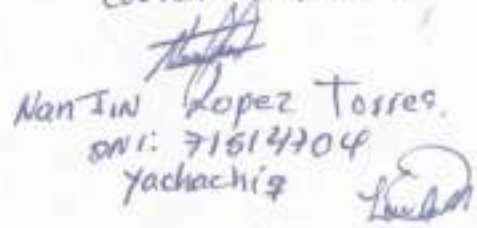 Nan Jin Lopez Torres.
DNI: 71514704
Yachachiq